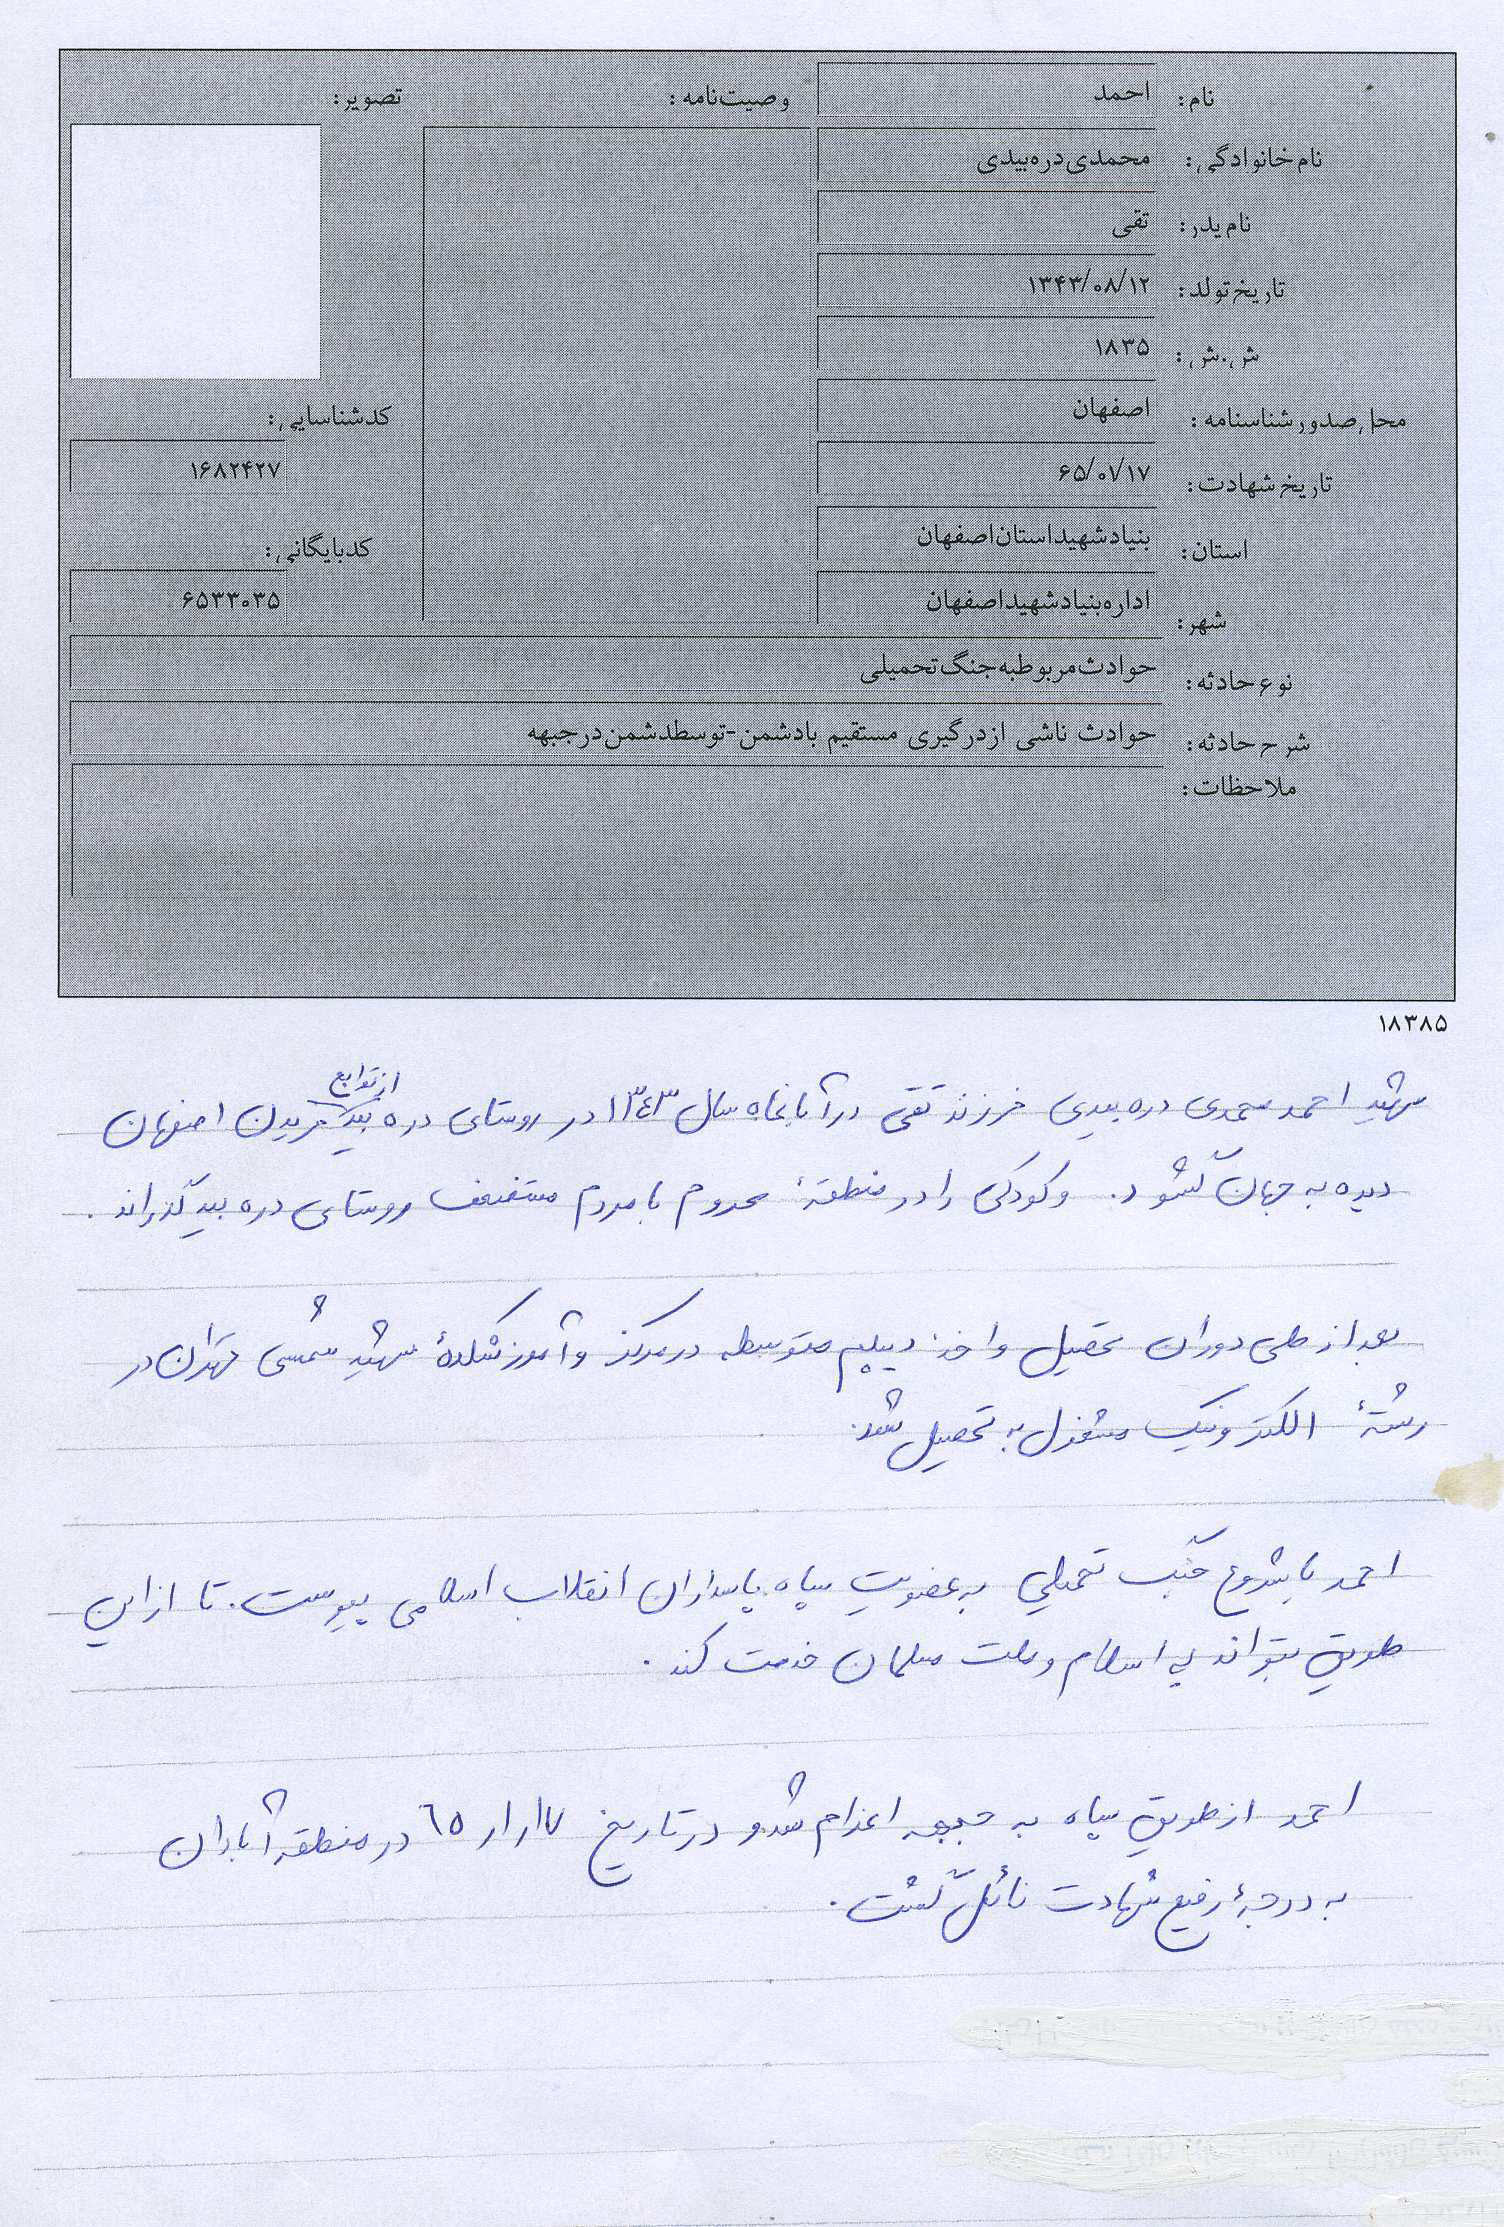 نام: احمد
وصیت‌نامه:
تصویر:
نام خانوادگی: محمدی دره بیدی
نام پدر: تقی
تاریخ تولد: ۱۳۴۳/۰۸/۱۲
ش.ش: ۱۸۳۵
محل صدور شناسنامه: اصفهان
کد شناسایی:
۱۶۸۲۴۲۷
تاریخ شهادت: ۶۵/۰۱/۱۷
استان: بنیاد شهید استان اصفهان
کد بایگانی:
۶۵۳۳۰۳۵
شهر: اداره بنیاد شهید اصفهان
نوع حادثه: حوادث مربوط به جنگ تحمیلی
شرح حادثه: حوادث ناشی از درگیری مستقیم با دشمن - توسط دشمن در جبهه
ملاحظات:
۱۸۳۸۵
شهید احمد محمدی دره بیدی فرزند تقی در آبانماه سال ۱۳٤۳ در روستای دره بید از توابع فریدن اصفهان
دیده به جهان گشود. و کودکی را در منطقهٔ محروم با مردم مستضعف روستای دره بید گذراند.
بعد از طی دوران تحصیل و اخذ دیپلم متوسطه در مرکز و آموزشکدهٔ شهید شمسی تهران در
رشتهٔ الکترونیک مشغول به تحصیل شد.
احمد با شروع جنگ تحمیلی به عضویت سپاه پاسداران انقلاب اسلامی پیوست. تا از این
طریق بتواند به اسلام و ملت مسلمان خدمت کند.
احمد از طریق سپاه به جبهه اعزام شد و در تاریخ ۱۷ر۱ر٦٥ در منطقه آبادان
به درجهٔ رفیع شهادت نائل گشت.